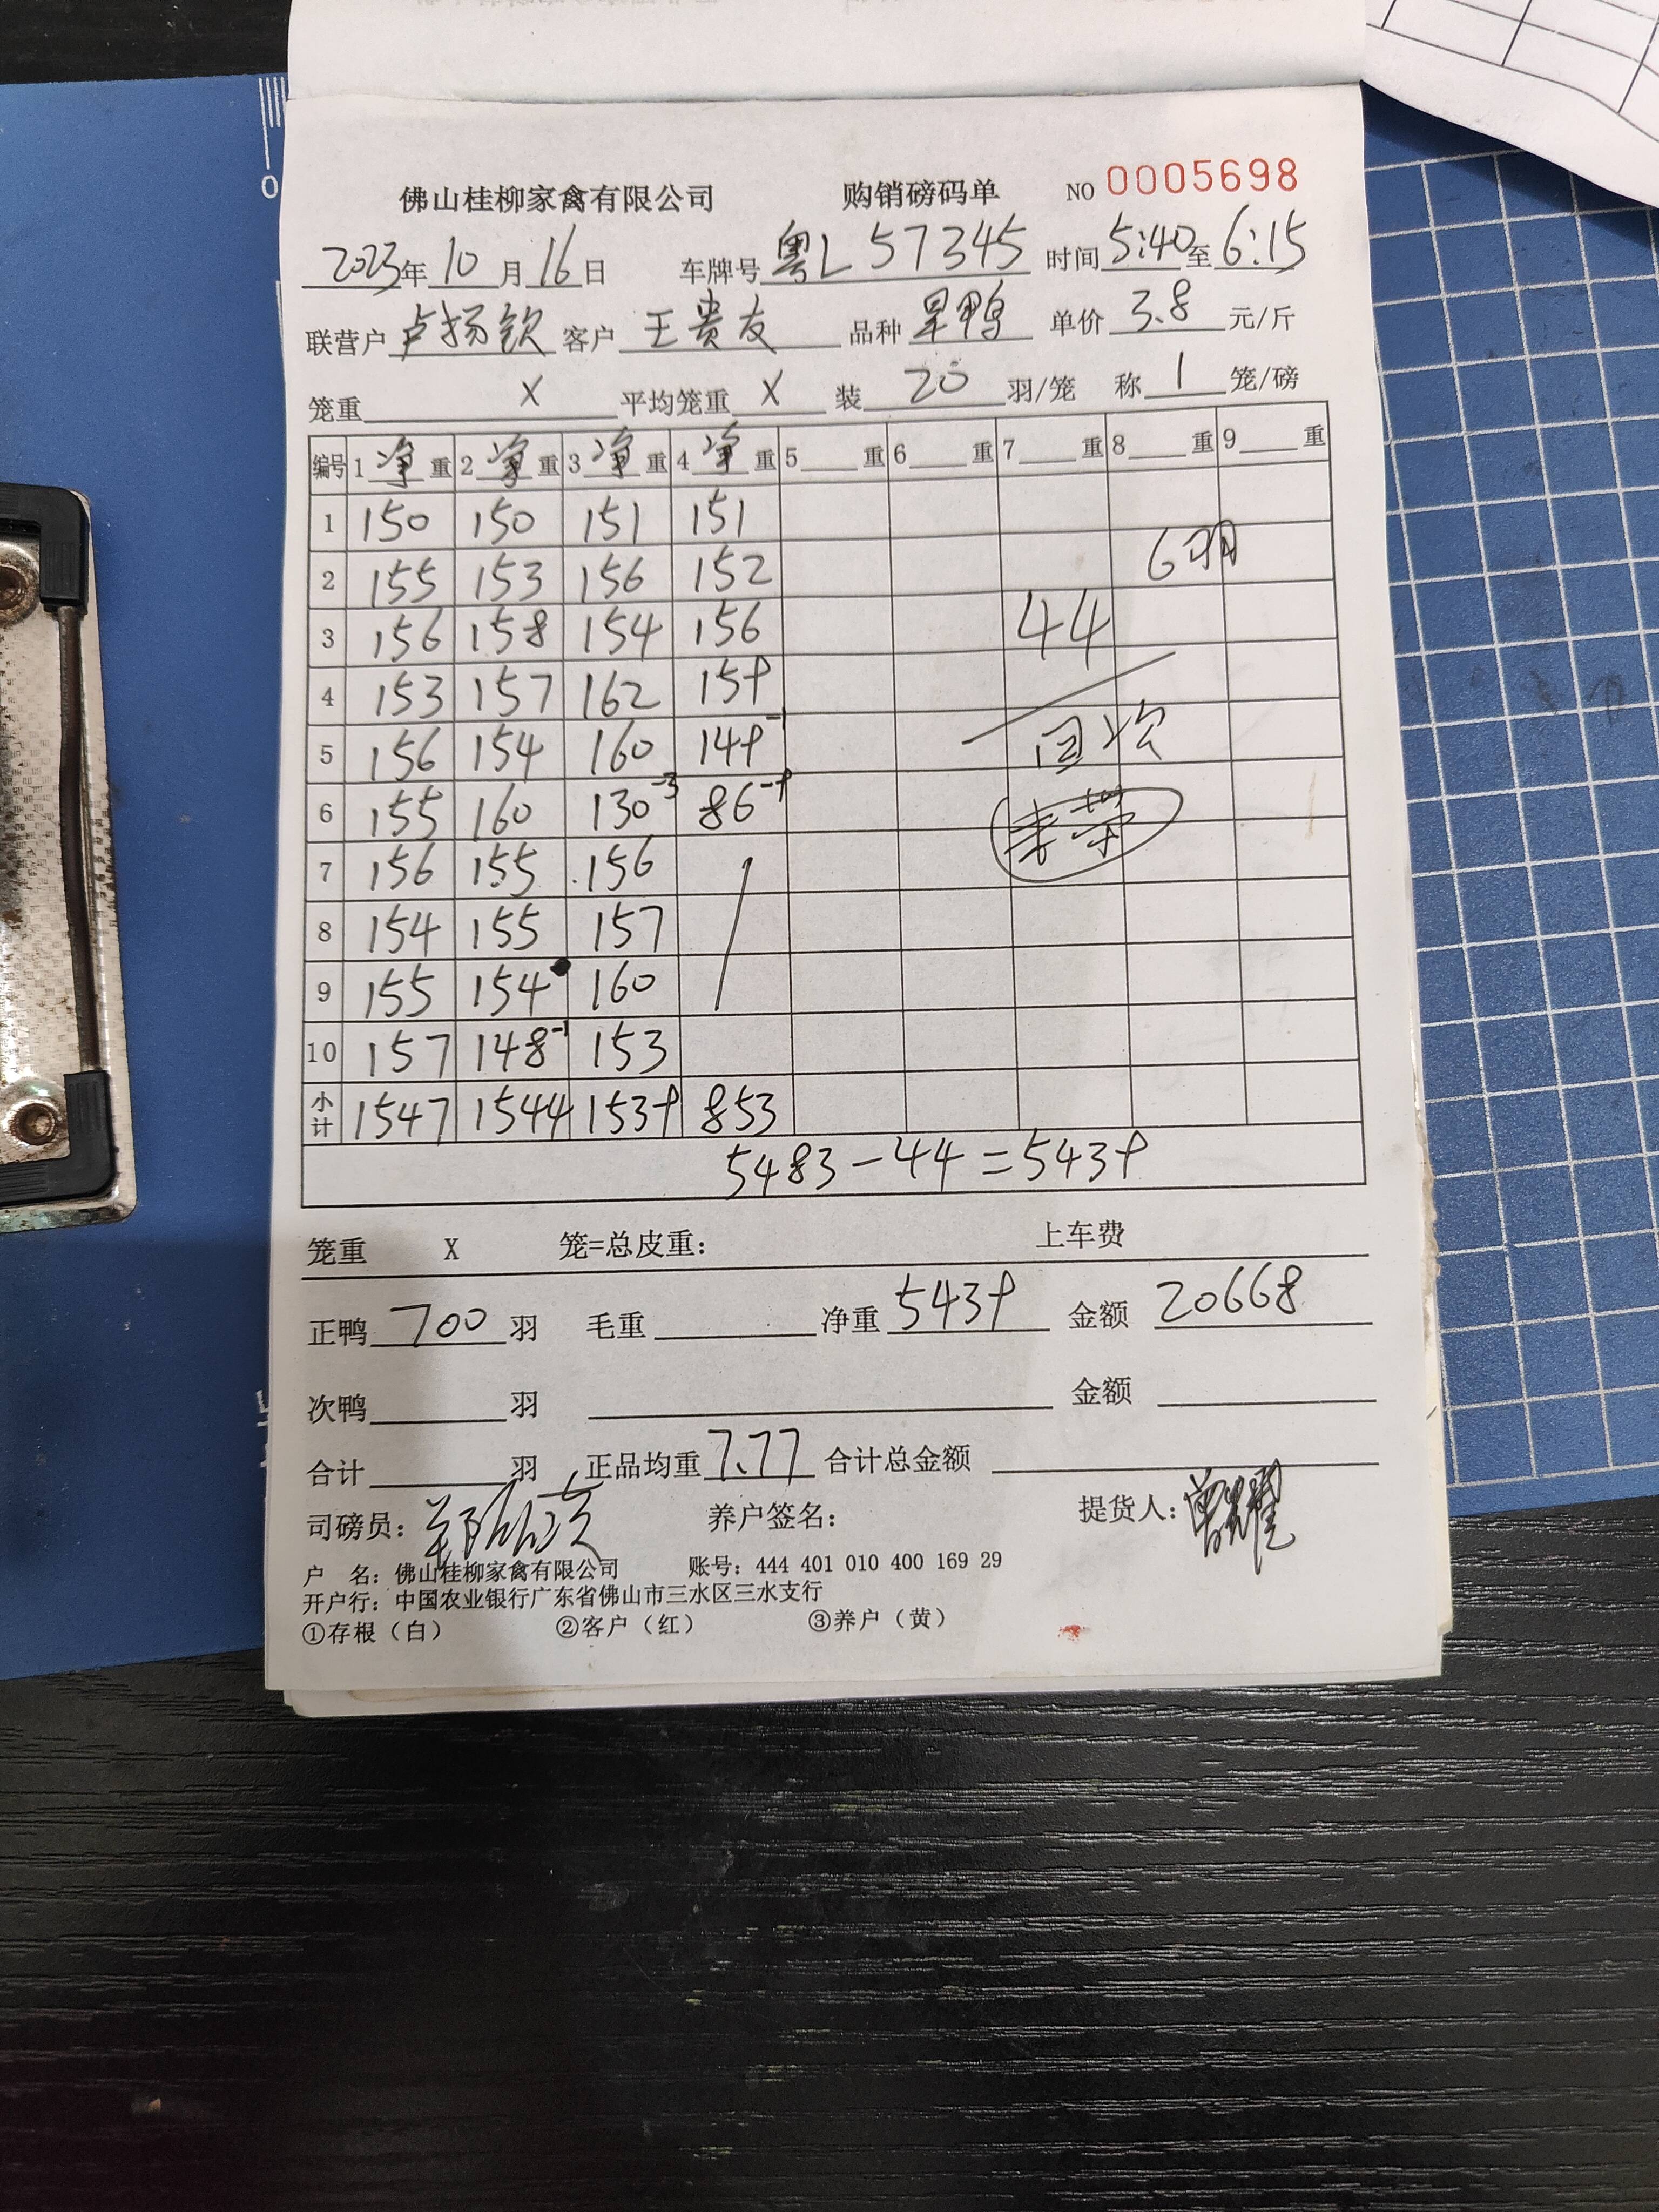 佛山桂柳家禽有限公司 购销磅码单 NO 0005698
2023年10月16日 车牌号粤L 57345 时间5:40至6:15
联营户卢扬钦 客户王贵友 品种旱鸭 单价3.8元/斤
笼重X 平均笼重X 装20羽/笼 称1笼/磅
编号 1净重 2净重 3净重 4净重 5重 6重 7重 8重 9重
1 150 150 151 151
2 155 153 156 152 6羽
3 156 158 154 156 44
4 153 157 162 159
5 156 154 160 149-1 回次
6 155 160 130-3 86-9
7 156 155 156
8 154 155 157
9 155 154 160
10 157 148-1 153
小计 1547 1544 1539 853
5483-44=5439
笼重 X 笼=总皮重: 上车费
正鸭700羽 毛重 净重5439 金额20668
次鸭 羽 金额
合计 羽 正品均重7.77 合计总金额
司磅员: 养户签名: 提货人:
户 名: 佛山桂柳家禽有限公司 账号: 444 401 010 400 169 29
开户行: 中国农业银行广东省佛山市三水区三水支行
①存根（白） ②客户（红） ③养户（黄）